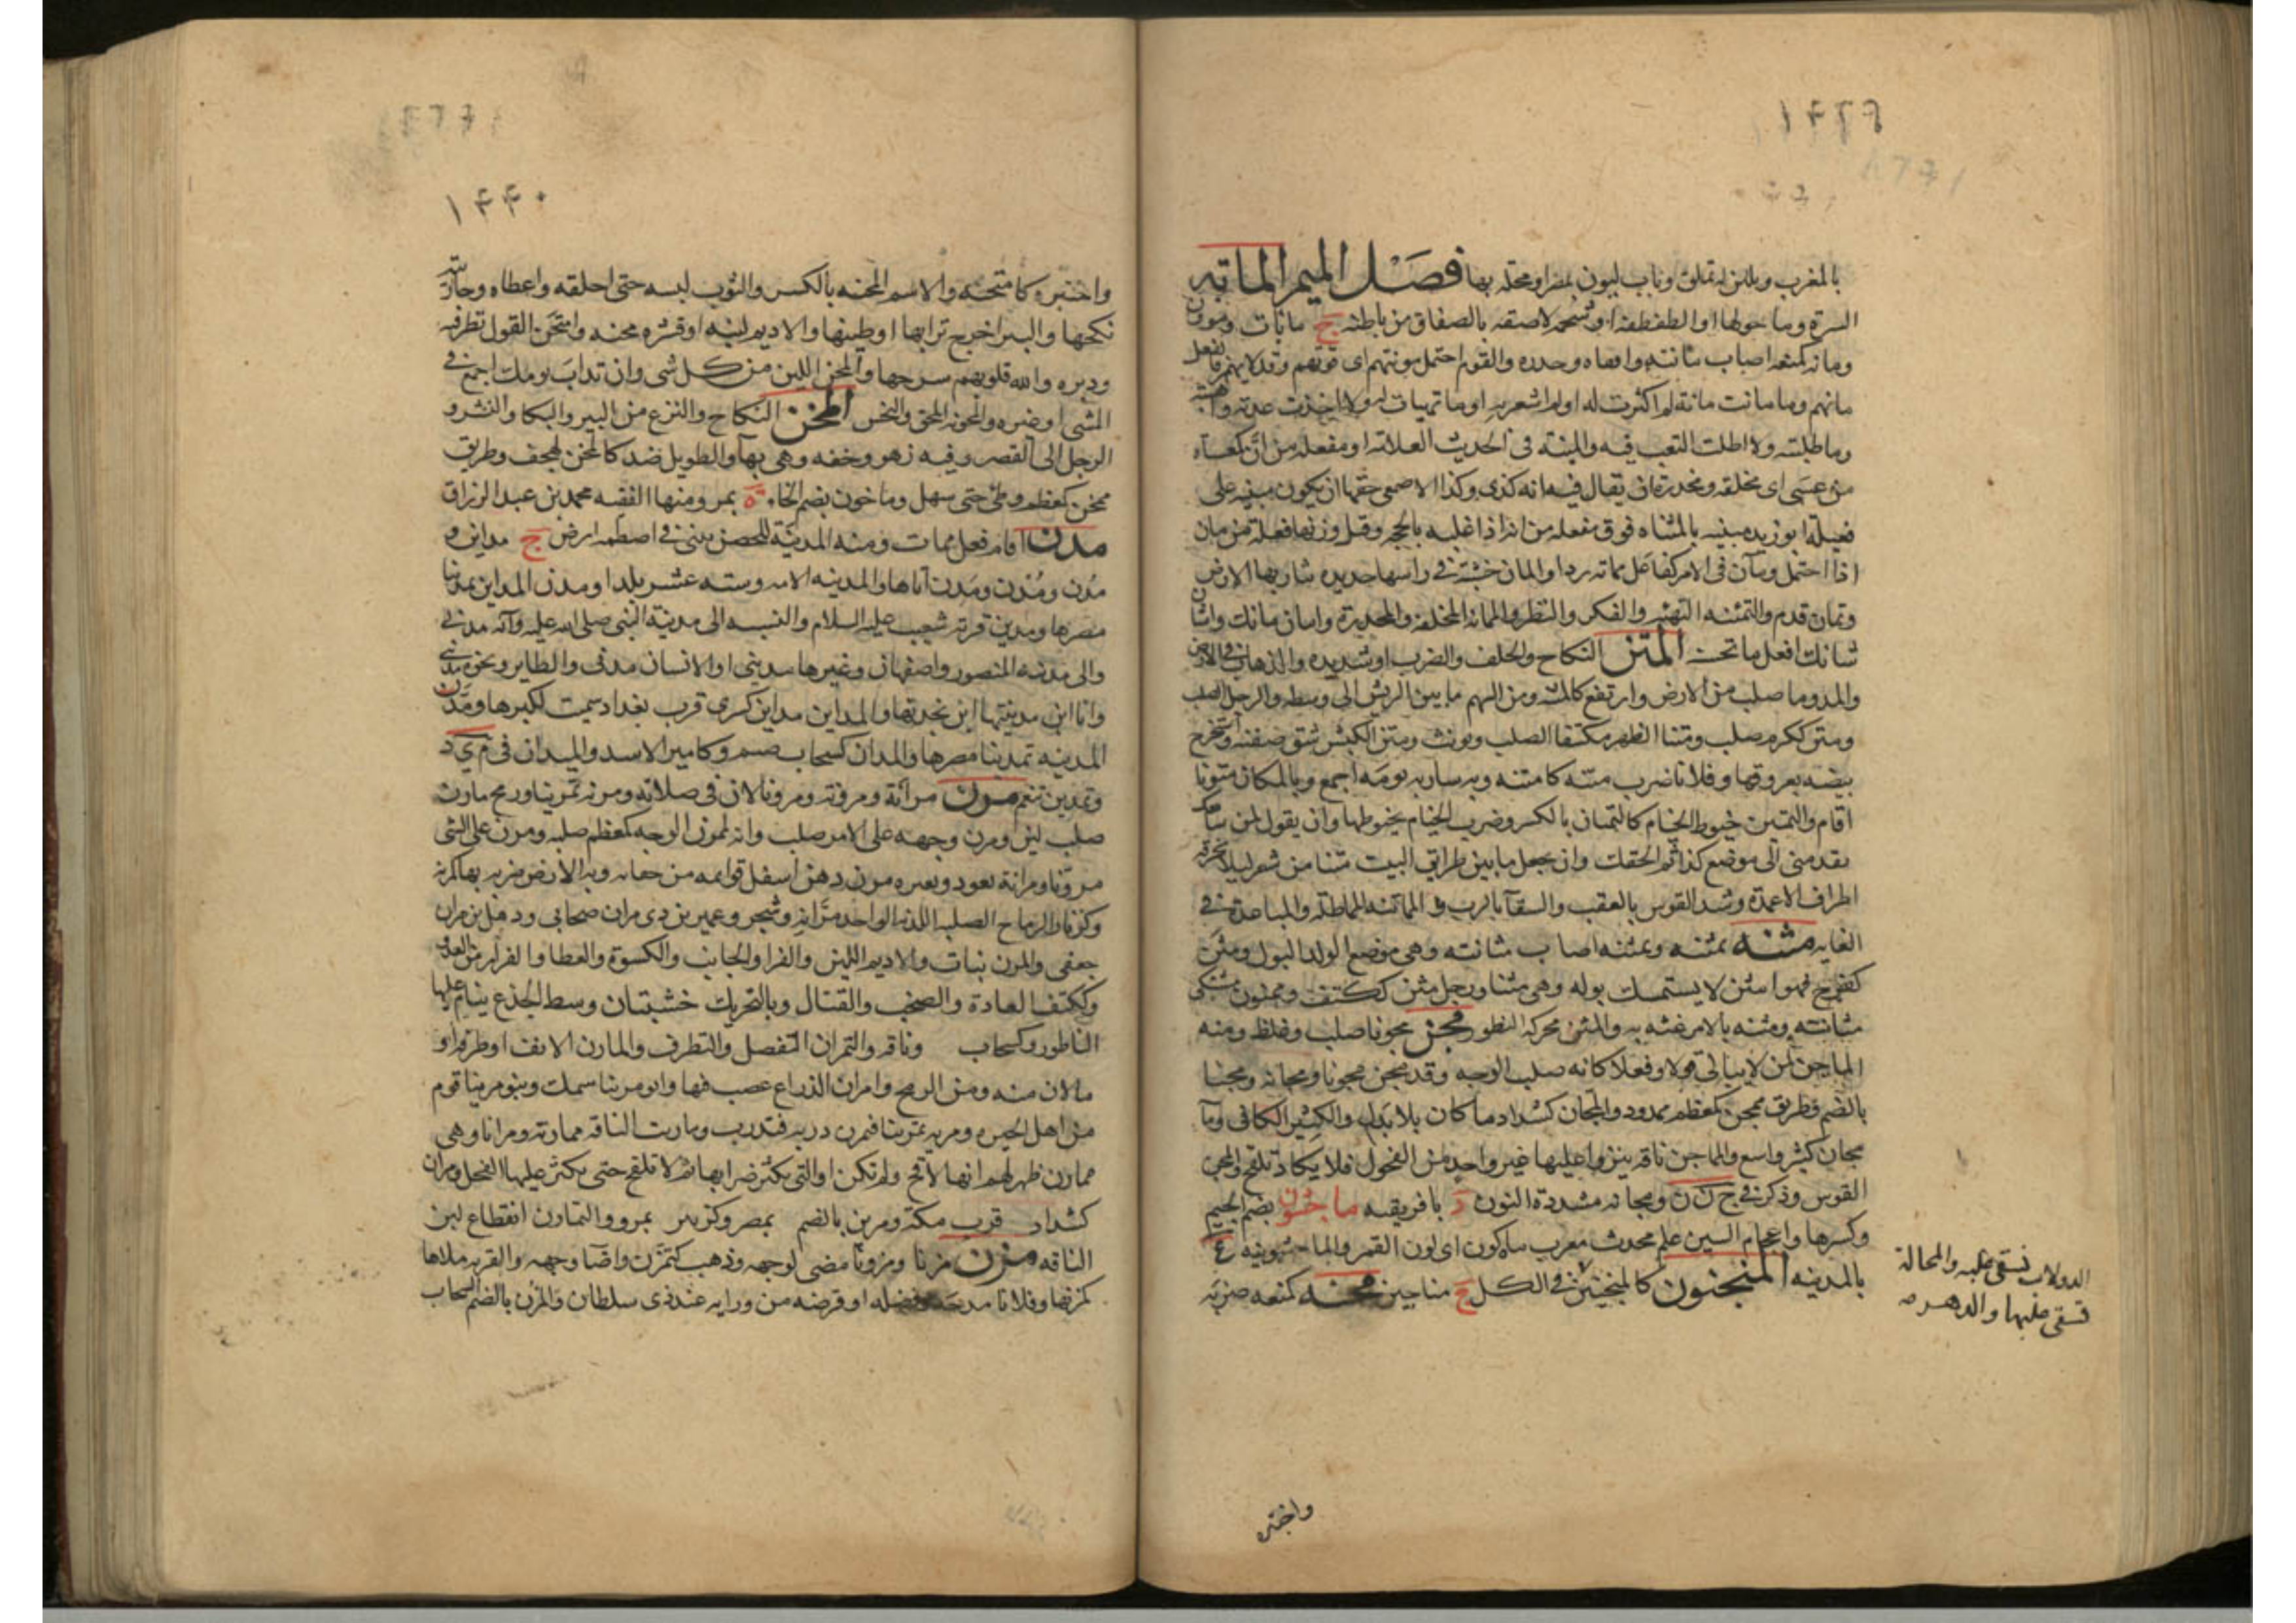 ١٤٣٩
بالمغرب وبلن له تملق وناب ليون بمصر ومحلة بها فصل الميم المانه
السرة وما حولها او الطفطفة او شحمة لاصقة بالصفاق من باطنه ج مانات ومؤون
ومانه كمنعه اصاب مانته واتقاه وحذره والقوم احتمل مونتهم اى قوتهم وقد لا يهمز فالفعل
مانهم وما مانت مانه لم اكترث له او لم اشعر به او ما تهيات له ولا اخذت عدته واهبته
وما طلبته ولا اطلت التعب فيه والمئنة فى الحديث العلامة او مفعلة من ان كمعساة
من عسى اى مخلقة ومجدرة ان يقال فيه انه كذى وكذا الاصمعى حقها ان يكون مئينة على
فعيلة ابو زيد مئتة بالمثناه فوق مفعلة من اته اذا غلبه بالحجه وقيل وزنها فعلة من مان
اذا احتمل ومآن فى الامر كفاعل ممانه رو او المان خشبة فى راسها حديده تثار بها الارض
وتمان قدم والتمئنة التهيئه والفكر والنظر والممانة المخلقة والمجدرة وامان مانك واشان
شانك افعل ما تحسنه المتن النكاح والحلف والضرب او شديده والذهاب فى الارض
والمد وما صلب من الارض وارتفع كالمتنه ومن السهم ما بين الريش الى وسطه والرجل الصلب
ومتن ككرم صلب ومتنا الظهر مكتنفا الصلب ويونث ومتن الكبش شق صفنه واستخرج
بيضه بعروقها وفلانا ضرب متنه كامتنه وبه ساربه يومه اجمع وبالمكان متونا
اقام والتمتين خيوط الخيام كالتمتان بالكسر وضرب الخيام بخيوطها وان يقول لمن سابقك
تقدمنى الى موضع كذا ثم الحقك وان يجعل ما بين طرايق البيت متنا من شعر ليلا تخرقه
اطراف الاعمدة وشد القوس بالعقب والسقآ بالرب و المماتنة المماطلة والمباعدة فى
الغايه مثنه يمثنه ويمثنه اصاب مثانته وهى موضع الولد او البول ومثن
كفرح فهو امثن لا يستمسك بوله وهى مثنا ورجل مثن ككتف وممثون يشتكى
مثانته ومثنه بالامر غته به والمثن محركة النظور مجن مجونا صلب وغلظ ومنه
الماجن لمن لا يبالى قولا وفعلا كانه صلب الوجه وقد مجن مجونا ومجانة ومجنا
بالضم وطريق ممجن كمعظم ممدود والمجان كشداد ما كان بلا بدل والكثير الكافى وما
مجان كثير واسع والمماجن ناقة ينزو عليها غير واحد من الفحول فلا يكاد تلقح والمجن
القوس وذكر فى ج ن ن ومجانه مشددة النون د بافريقيه ماجشون بضم الجيم
وكسرها واعجام السين علم محدث معرب ماه كون اى لون القمر والماجشونية ع
بالمدينه المنجنون كالمنجنين فى الكل ج مناجين محنه كمنعه ضربه
الدولاب يستقى عليه والمحالة
يسقى عليها والدهر صه
واختبره
١٤٤٠
واختبره كامتحنه والاسم المحنه بالكسر والثوب لبسه حتى اخلقه واعطاه وجاريته
نكحها والبير اخرج ترابها وطينها والاديم لينه او قشره محنه وامتحن القول نظر فيه
ودبره والله قلوبهم شرحها والمحن اللين من كل شى وان تداب يومك اجمع فى
المشى او غيره والمحونة المحق والنحس المخن النكاح والنزع من البير والبكا والقشر و
الرجل الى القصر وفيه زهو وخفه وهى بها والطويل ضد كالمخن كهجف وطريق
ممخن كمعظم وطى حتى سهل وماخون بضم الخا ة بمرو منها الفقيه محمد بن عبد الرزاق
مدن اقام فعل ممات ومنه المدينة للحصن يبنى فى اصطمة ارض ج مداين و
مدن ومدن ومدن اتاها والمدينه الامه وسته عشر بلدا ومدن المداين تمدينا
مصرها ومدين قرية شعيب عليه السلام والنسبه الى مدينة النبى صلى الله عليه وآله مدنى
والى مدينة المنصور واصفهان وغيرها مدينى او الانسان مدنى والطاير ونحوه مدينى
وانا ابن مدينتها ابن بجدتها والمداين مداين كسرى قرب بغداد سميت لكبرها ومدن
المدينه تمدينا مصرها والمدان كسحاب صنم وكامير الاسد والميدان فى م ى د
وتمدين تنعم مرن مرانة ومرونة ومرونا لان فى صلابة ومرنه تمرينا ورمح مارن
صلب لين ومرن وجهه على الامر صلب وانه لممرن الوجه كمعظم صلبه ومرن على الشى
مرونا ومرانة تعود وبعيره مرن دهن اسفل قوايمه من حفا به وبه الارض ضربه بها كمرنه
وكزنار الرماح الصلبه اللدنة الواحد مرانة وشجر وعمير بن ذى مران صحابى وذهل بن مران
جعفى والمرن نبات والاديم اللين والفرا والجانب والكسوة والعطا والفرار من العدو
وككتف العادة والصخب والقتال وبالتحريك خشبتان وسط الجذع ينام عليها
الناطور وكسحاب وناقه والتمرن التفضل والتظرف والمارن الانف او طرفه او
ما لان منه ومن الرمح وامران الذراع عصب فيها وابو مرينا سمك وبنو مرينا قوم
من اهل الحيره ومرنه تمرينا فتمرن دربه فتدرب ومارنت الناقه ممارنة ومرانا وهى
ممارن ظهر لهم انها لاقح ولم تكن او التى يكثر ضرابها ثم لا تلقح حتى يكثر عليها الفحل ومران
كشداد قرب مكة ومرين بالضم بمصر وكزبير بمرو والتمارن انقطاع لبن
الناقه مزن مزنا ومزونا مضى لوجهه وذهب كتمزن واضآ وجهه والقربه ملاها
كمزنها وفلانا مدحه وفضله او قرضه من ورايه عند ذى سلطان والمزن بالضم السحاب